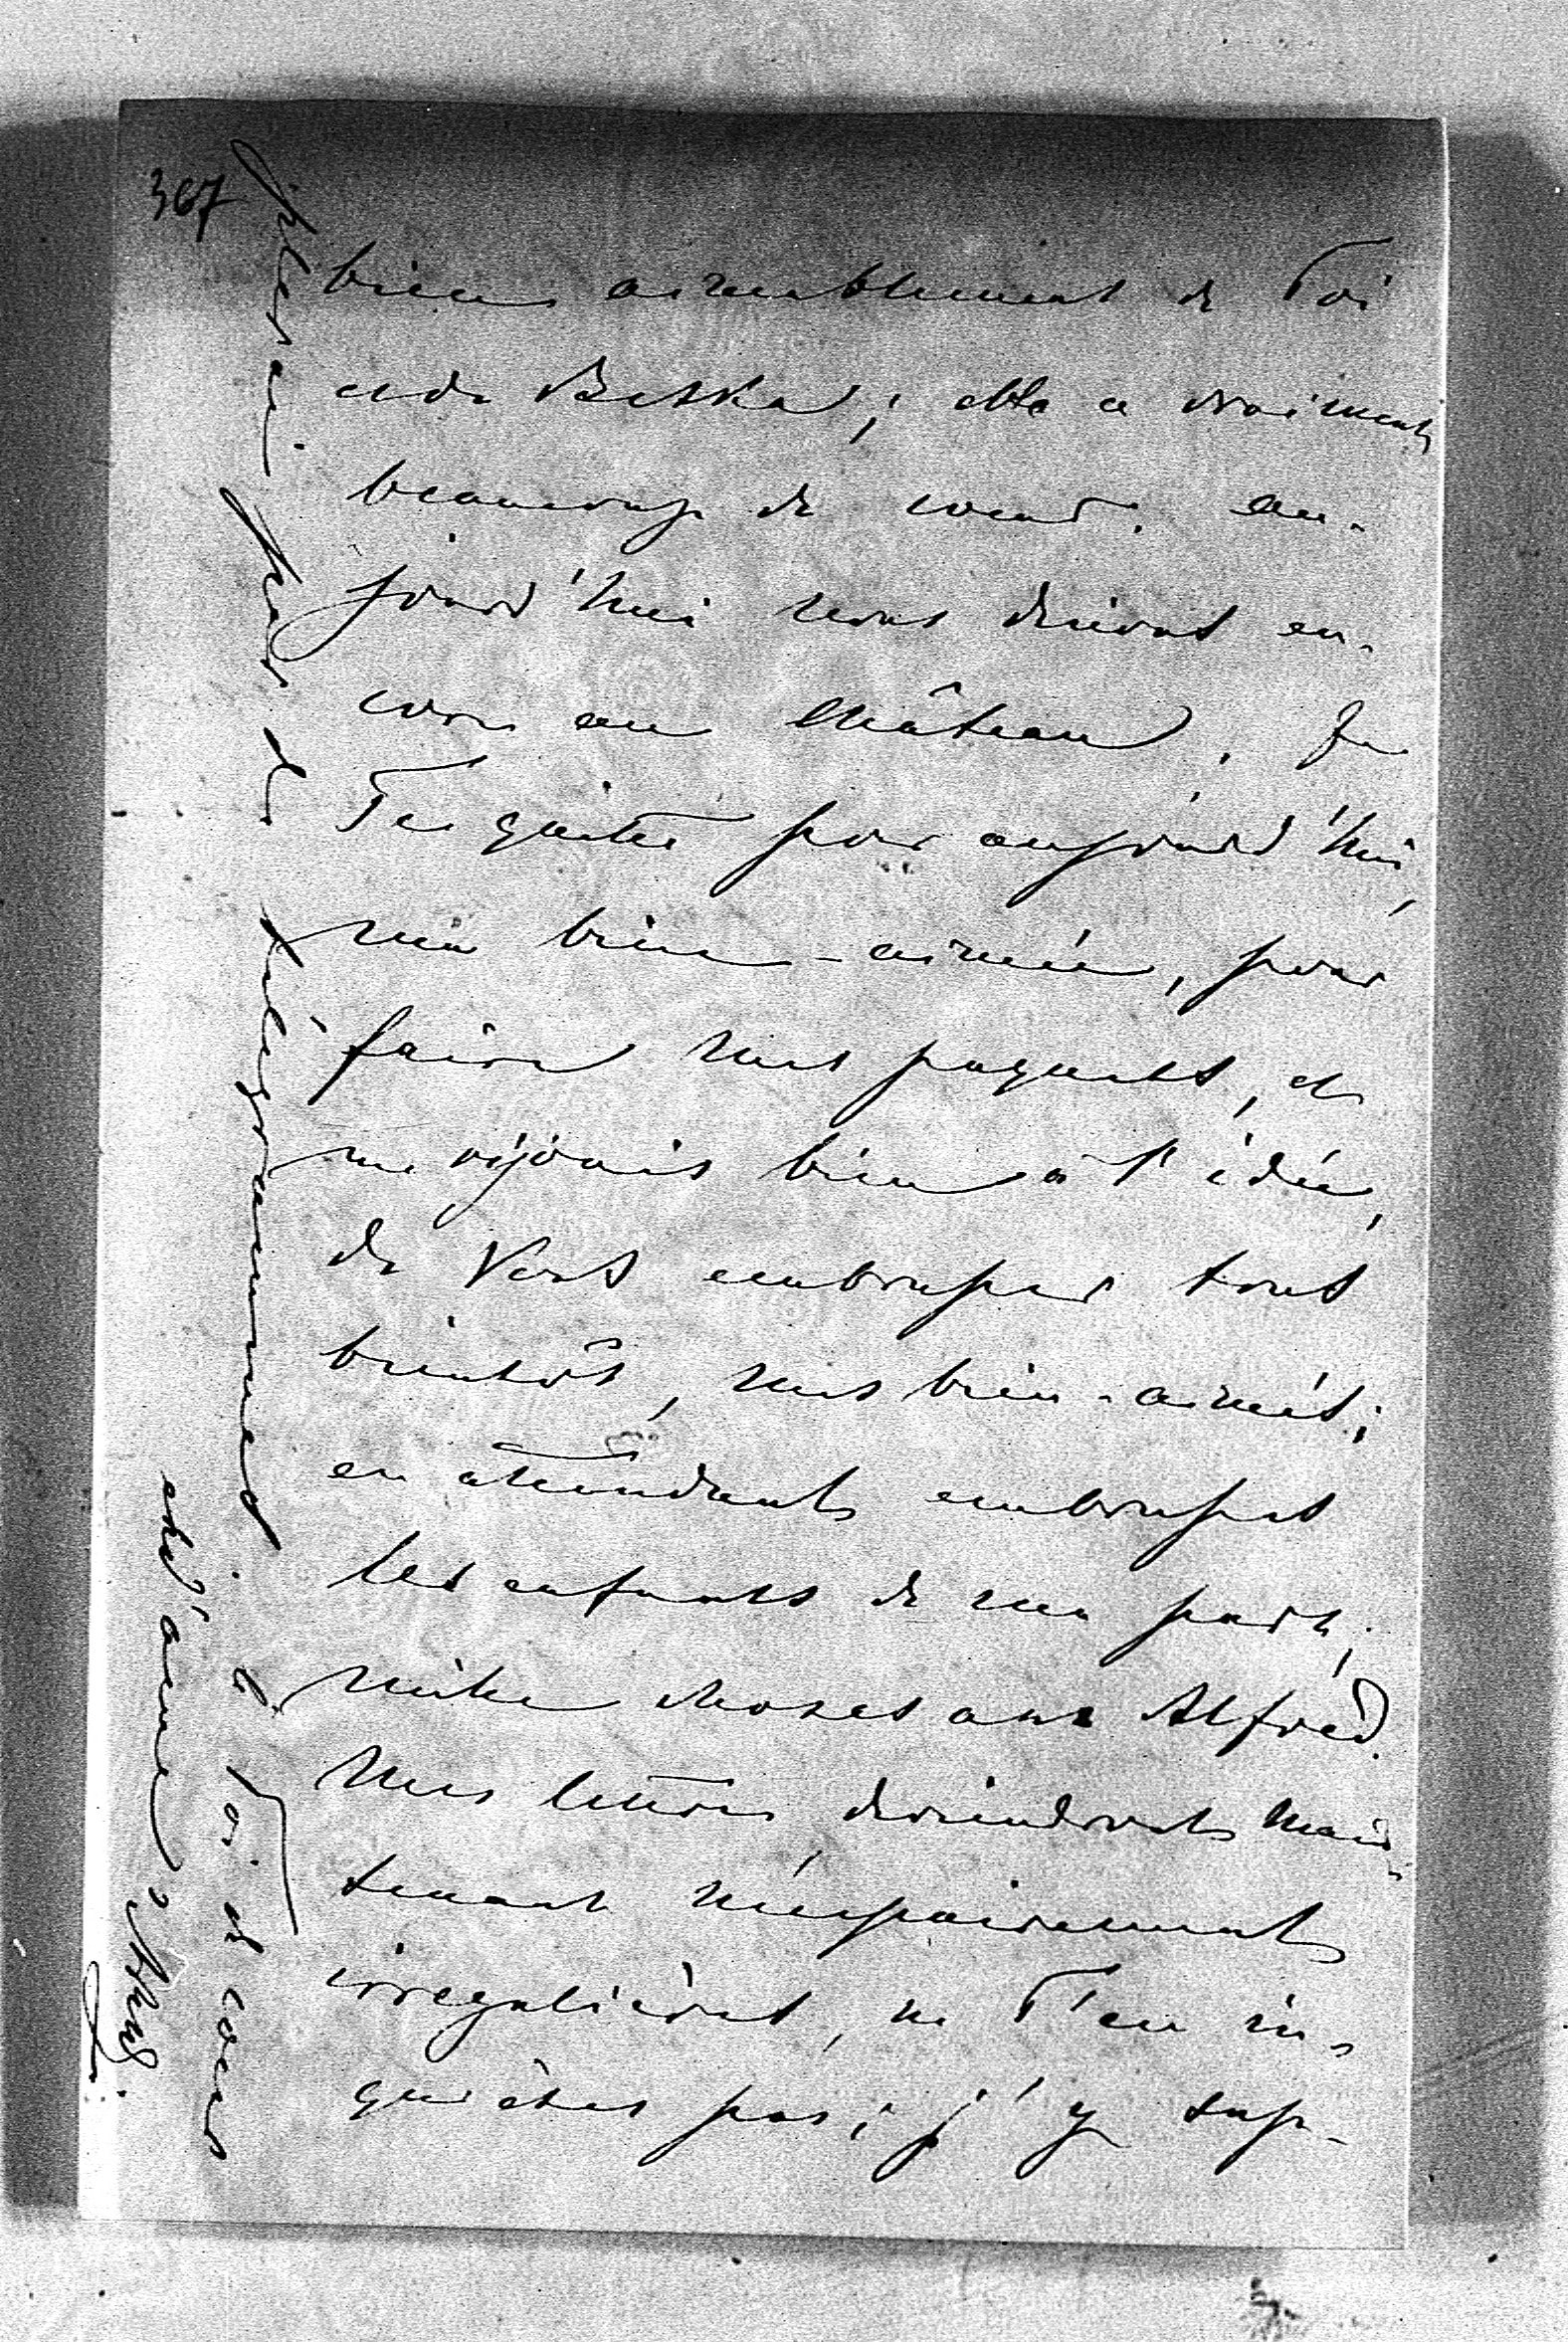 367
bien aimablement de Toi
et de Betka; elle a vraiment
beaucoup de coeur. Au-
jourd'hui nous dinons en-
core au château. Je
Te quitte pour aujourd'hui,
ma bien-aimée, pour
faire mes paquets, et
me réjouis bien à l'idée,
de Vous embrasser tous
bientôt, mes bien-aimés;
en attendant embrasses
les enfants de ma part,
mille choses aux Alfred.
Mes lettres deviendront main-
tenant nécessairement
irregulières, ne T'en in-
quiètes pas; j'y sup-
pléerai par des
télégrammes.
à Toi de coeur
et d'âme